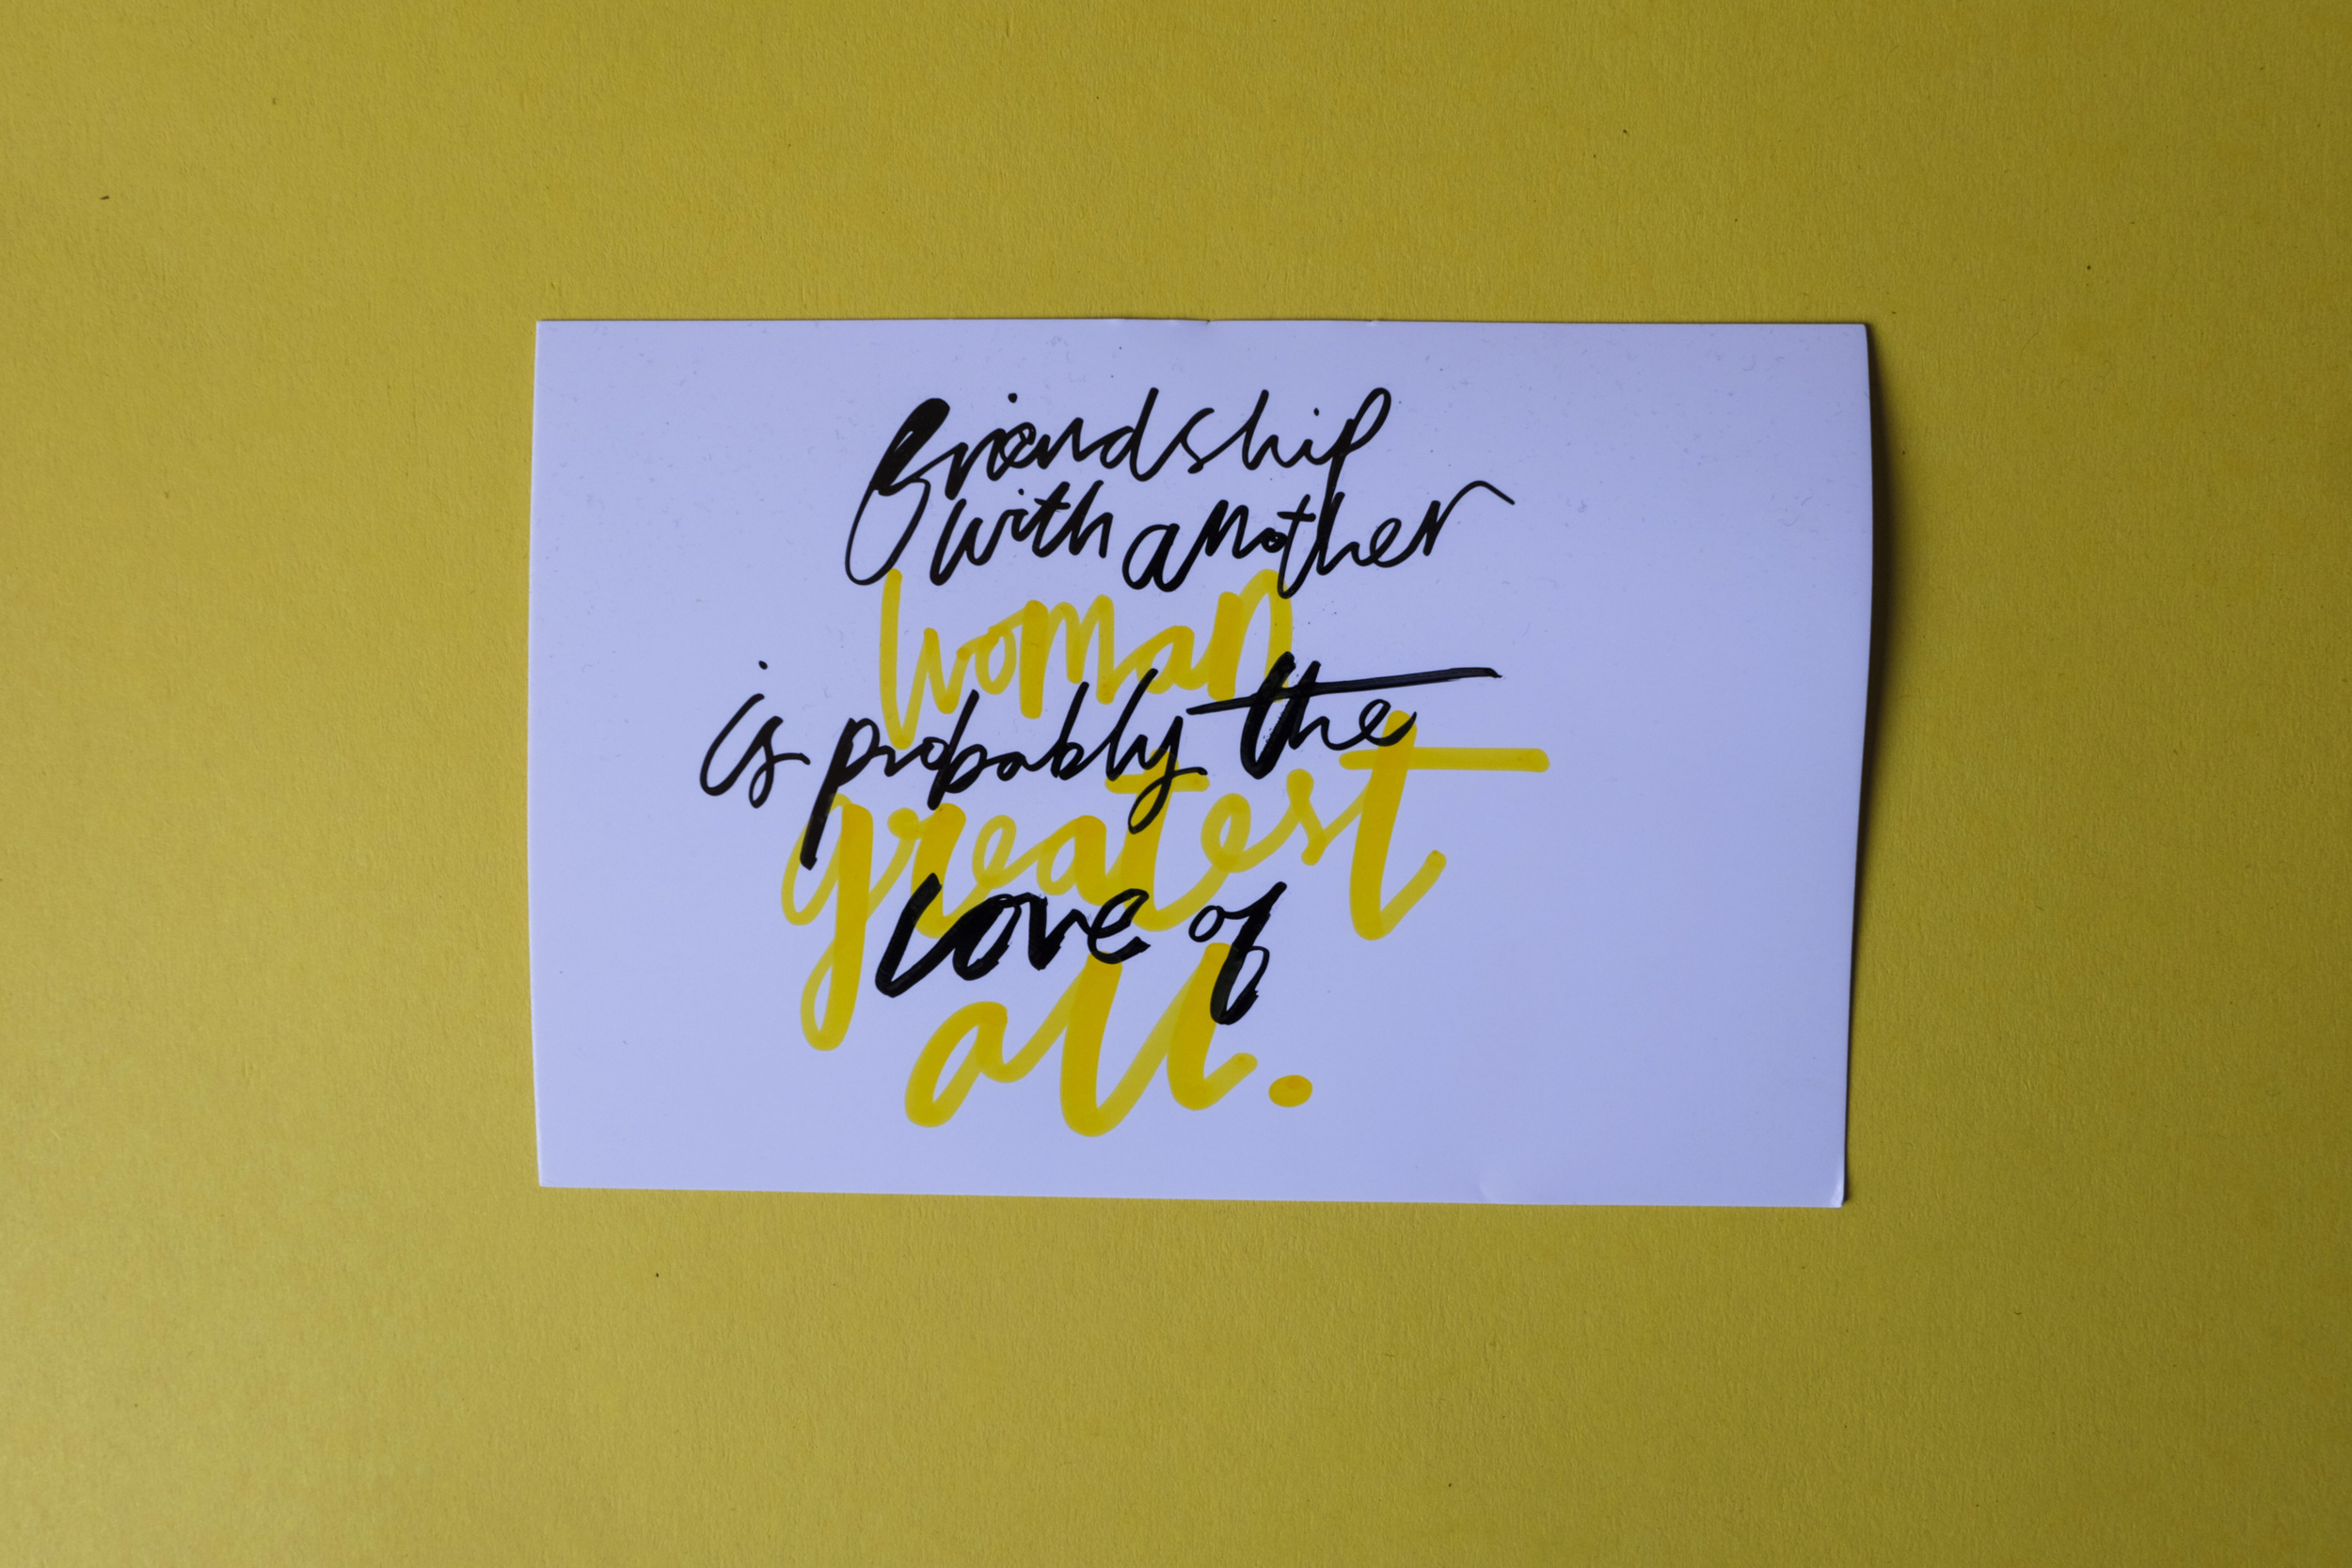 Friendship
with another
woman
is probably the
greatest
love of
all.